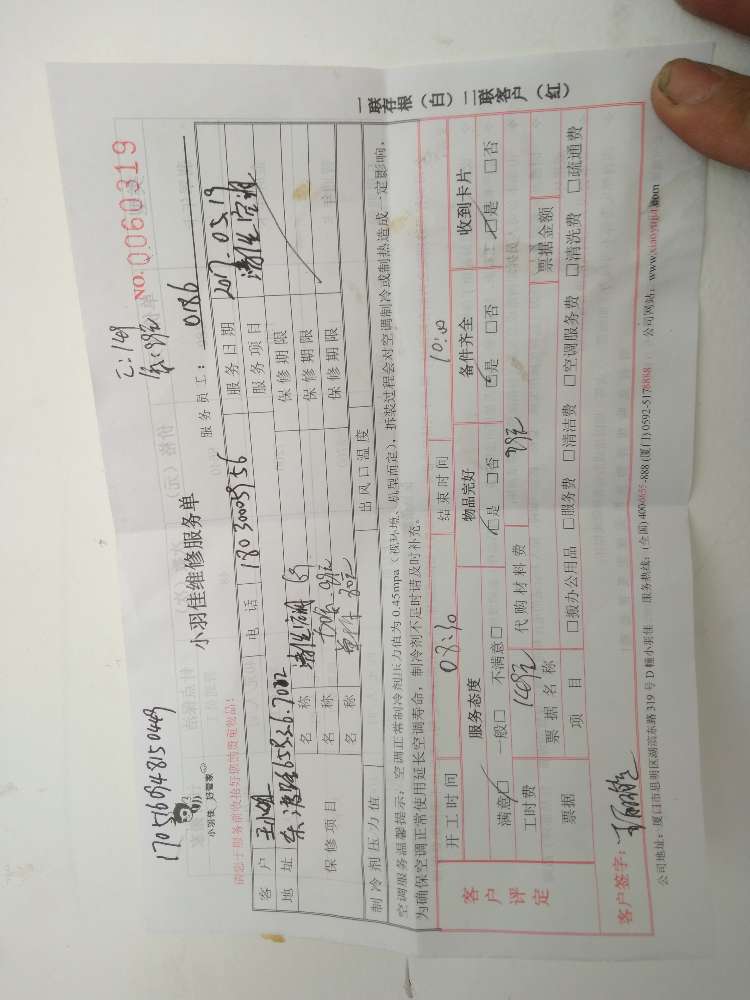 17056948150449
工:149
NO.0060319
小羽佳 好管家
小羽佳维修服务单
服务员工: 0186
请您于服务前收拾好您的贵重物品!
客户 电话 18030005956 服务日期 2017.05.19
地址 服务项目 清洗空调
保修项目 名称 清洗空调 保修期限
名称 保修期限
名称 保修期限
制冷剂压力值 出风口温度
空调服务温馨提示:空调正常制冷剂压力值为0.45mpa(视环境、机型而定),拆装过程会对空调制冷或制热造成一定影响,
为确保空调正常使用延长空调寿命,制冷剂不足时请及时补充。
客户评定 开工时间 08:30 结束时间 10:00
服务态度 物品完好 备件齐全 收到卡片
满意□ 一般□ 不满意□ □是 □否 □是 □否 □是 □否
工时费 149元 代购材料费
票据 票据名称 票据金额
项目 □搬办公用品 □服务费 □清洁费 □空调服务费 □清洗费 □疏通费
客户签字:
公司地址:厦门市思明区湖滨东路319号D幢小羽佳 服务热线:(全国)4000655-888(厦门)0592-5178888 公司网站:www.xiaoyujia.com
一联存根(白)二联客户(红)